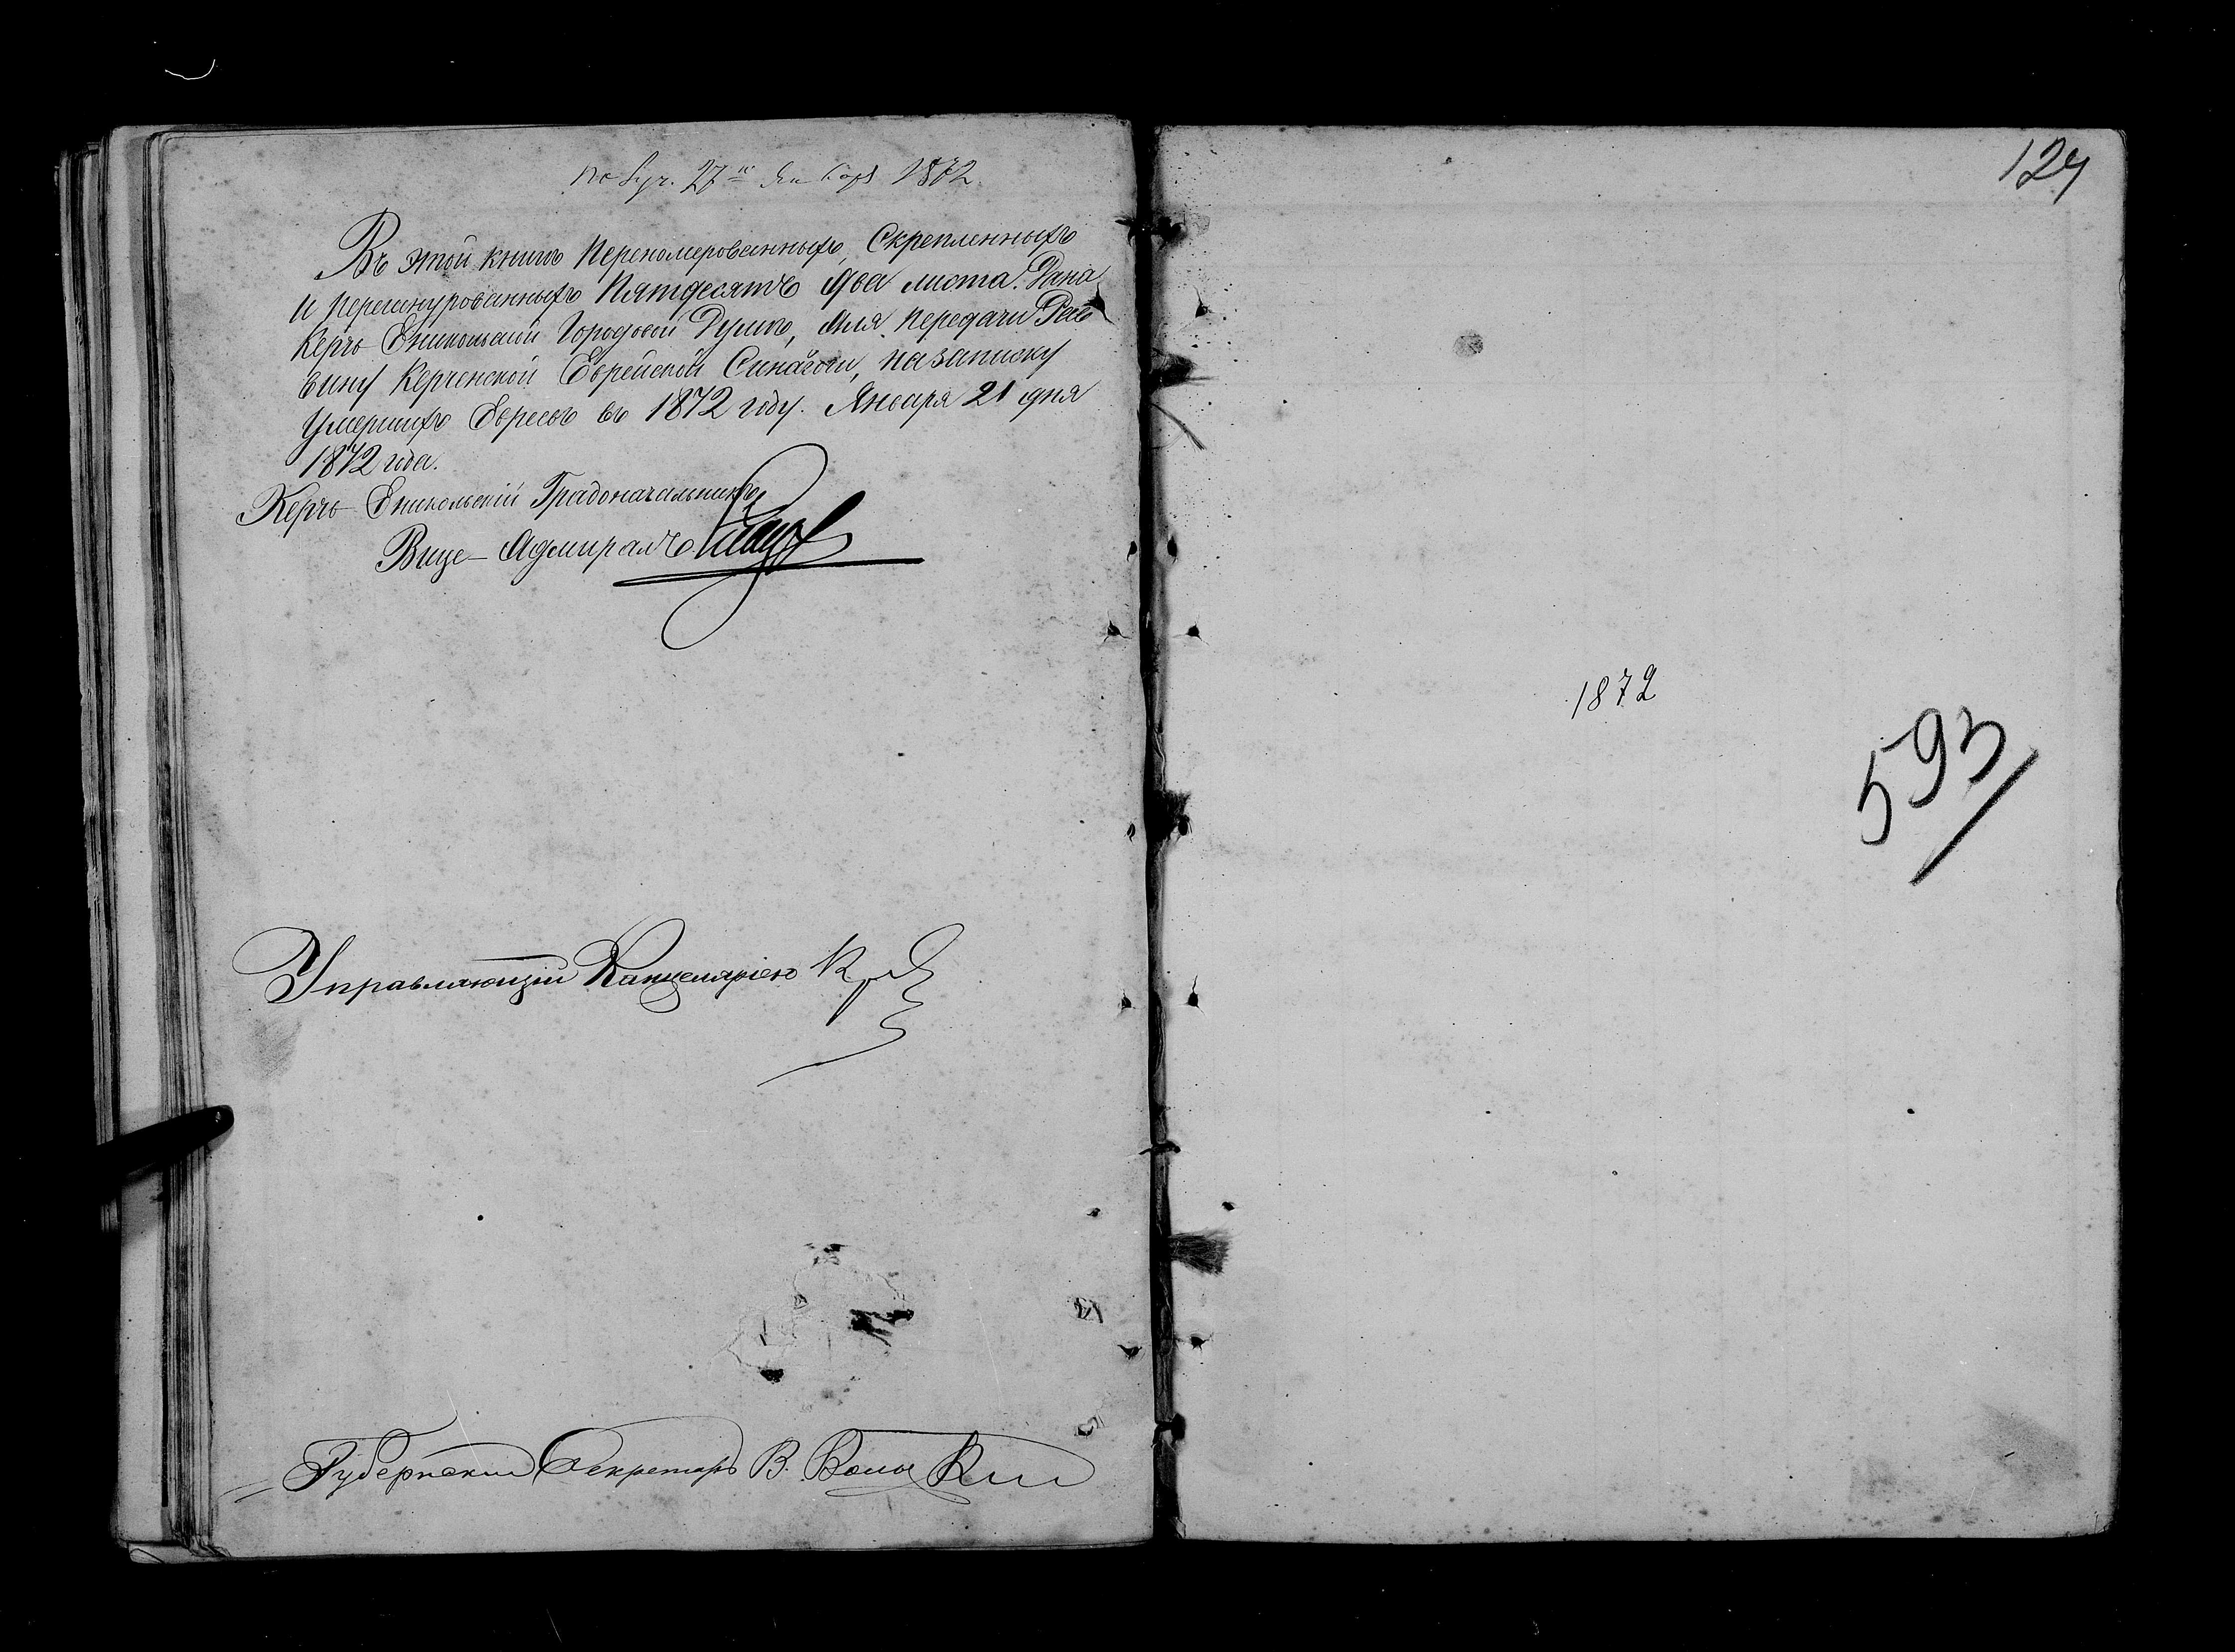 27го Января 1872
Въ этой книгѣ Перенумерованныхъ, Скрепленныхъ
и перешнурованныхъ Пятдесятъ два листа. Дана
Керчь Еникольской Городовой Думѣ, для передачи Рав
вину Керченской Еврейской Синагоги, на записку
Умершихъ Евреевъ въ 1872 году. Января 21 дня
1872 года.
Керчь-Еникольскій Градоначальникъ,
Вице-Адмиралъ
Управляющій Канцеляріею
Губернскій Секретарь В.
1872
593